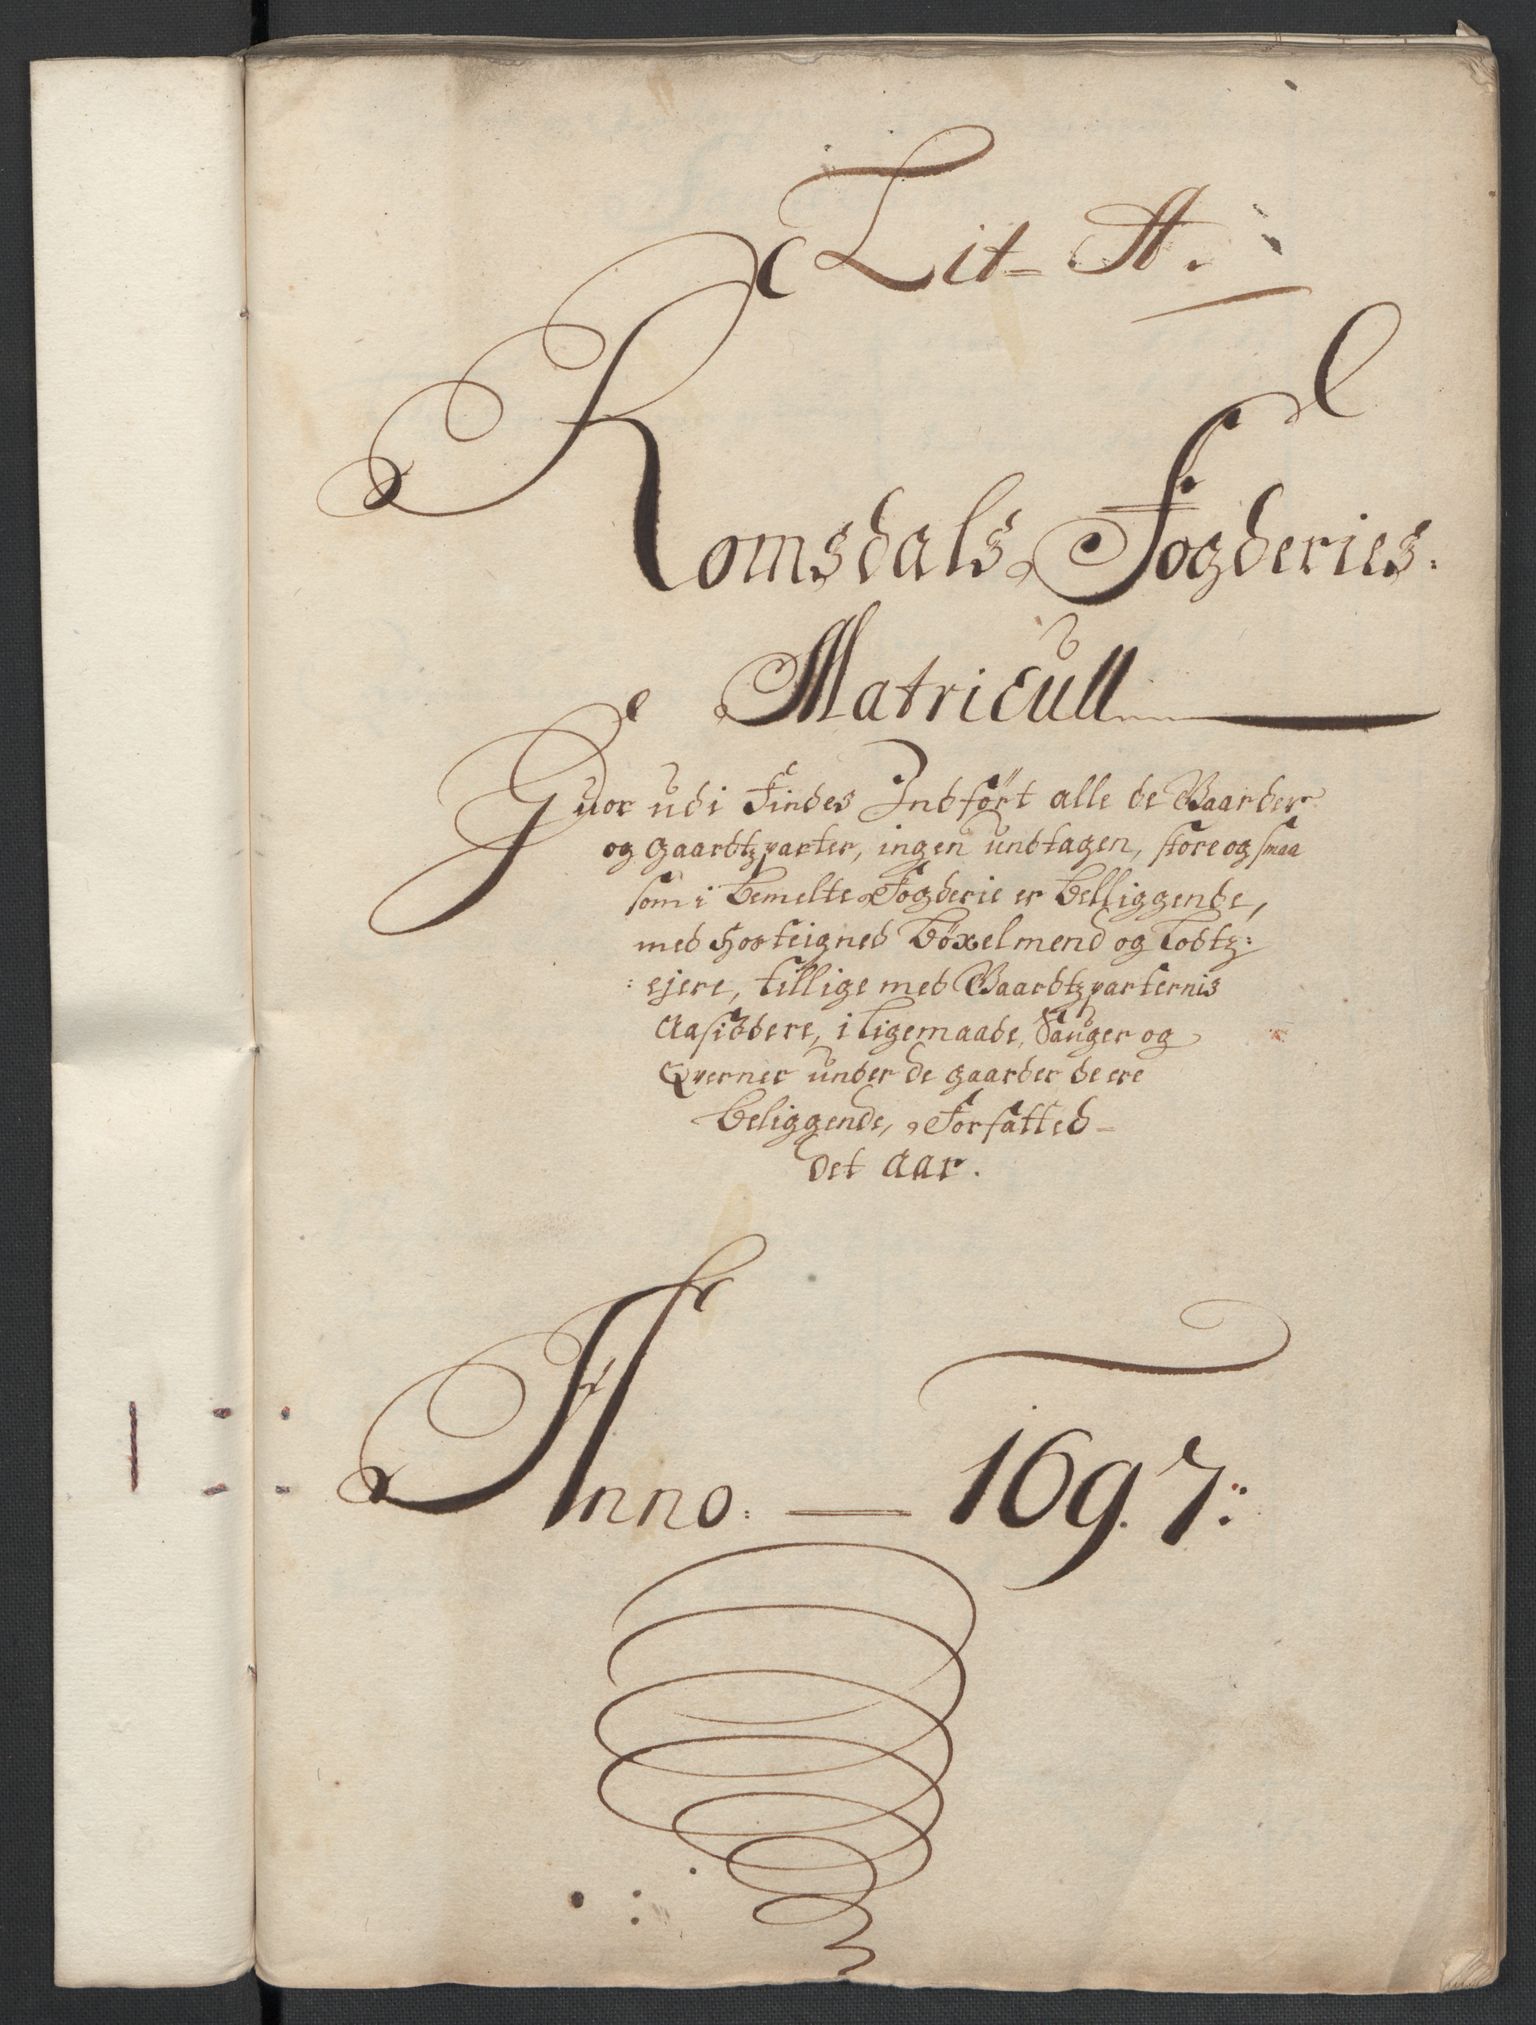 Lit- A.
Romsdals Fogderies.
Matricull
Huor udi Findes Indført alle de Gaarder
og gaardtzparter, ingen undtagen, store og smaa
som i bemelte Fogderie er belliggende,
med Hosteigned bøxelmend og Lodtz:
: ejere, tillige med Gaardtzparternis
Aasiddere, i ligemaade, Sauger og
Qverner under de gaarder de ere
beliggende, Forfatted
det aar.
Anno. — 1697: